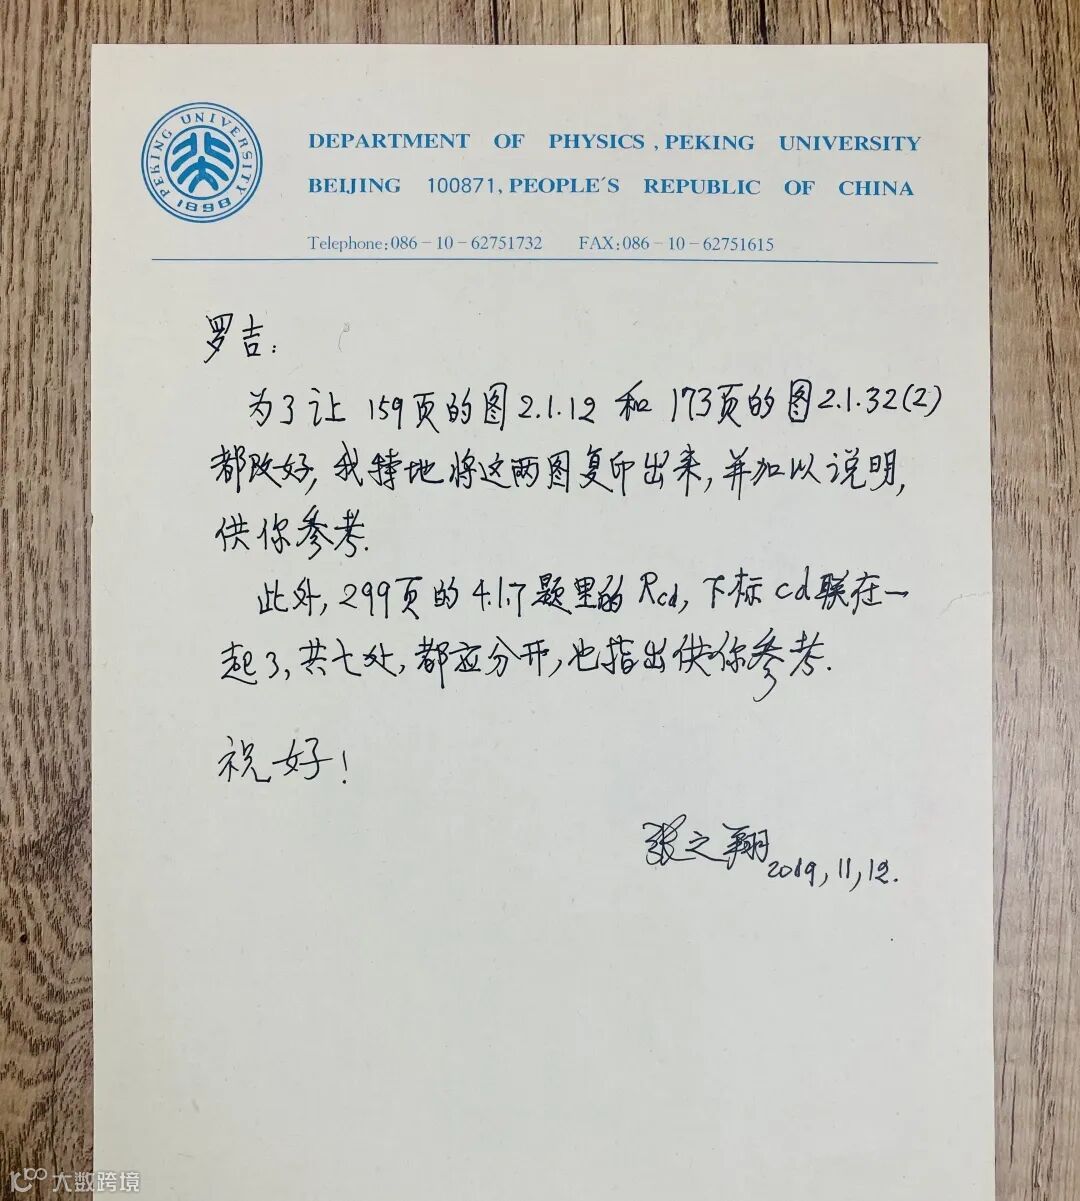 PEKING UNIVERSITY
1898
DEPARTMENT OF PHYSICS, PEKING UNIVERSITY
BEIJING 100871, PEOPLE'S REPUBLIC OF CHINA
Telephone:086-10-62751732 FAX:086-10-62751615
罗吉:
为了让159页的图2.1.12和173页的图2.1.32(2)
都改好,我特地将这两图复印出来,并加以说明,
供你参考.
此外,299页的4.1.7题里的Rcd,下标cd联在一
起了,共七处,都应分开,也指出供你参考.
祝好!
张之翔
2019,11,12.
大数跨境